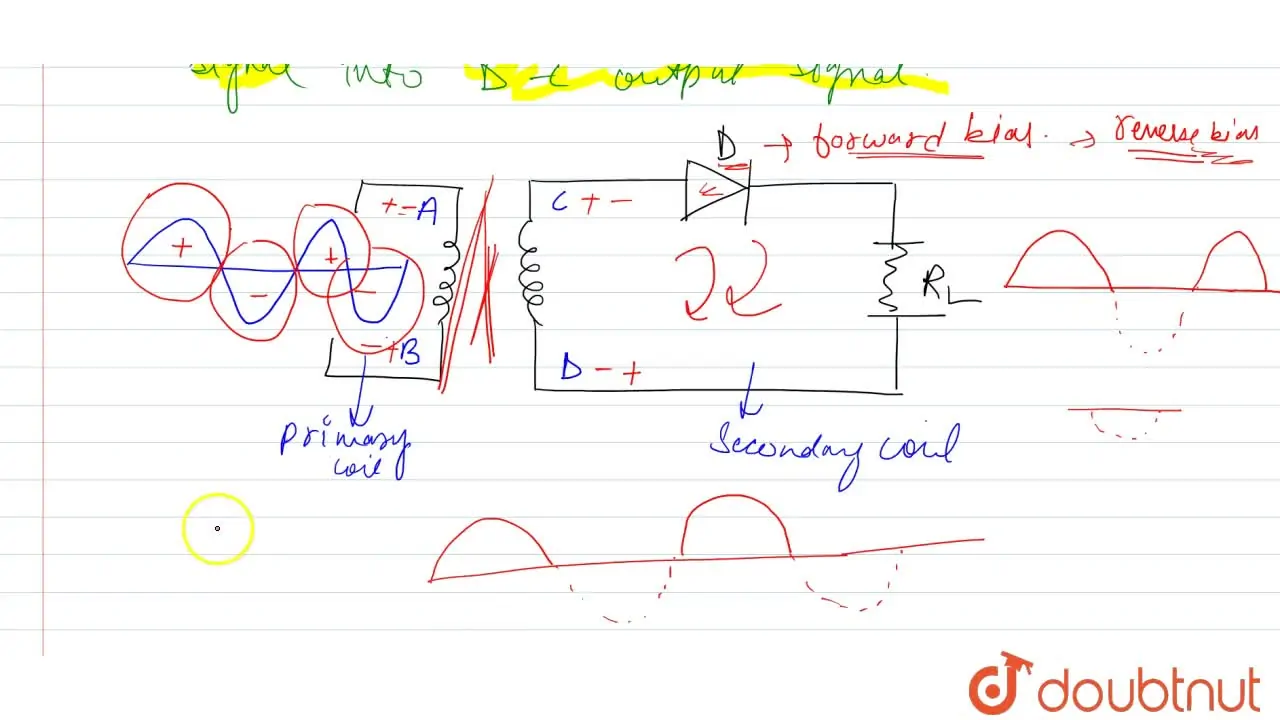 signal into D-C output signal.
D → forward bias. → reverse bias
+ - A
C + -
+ - + -
RL
- + B
D - +
Primary
coil
Secondary coil
doubtnut